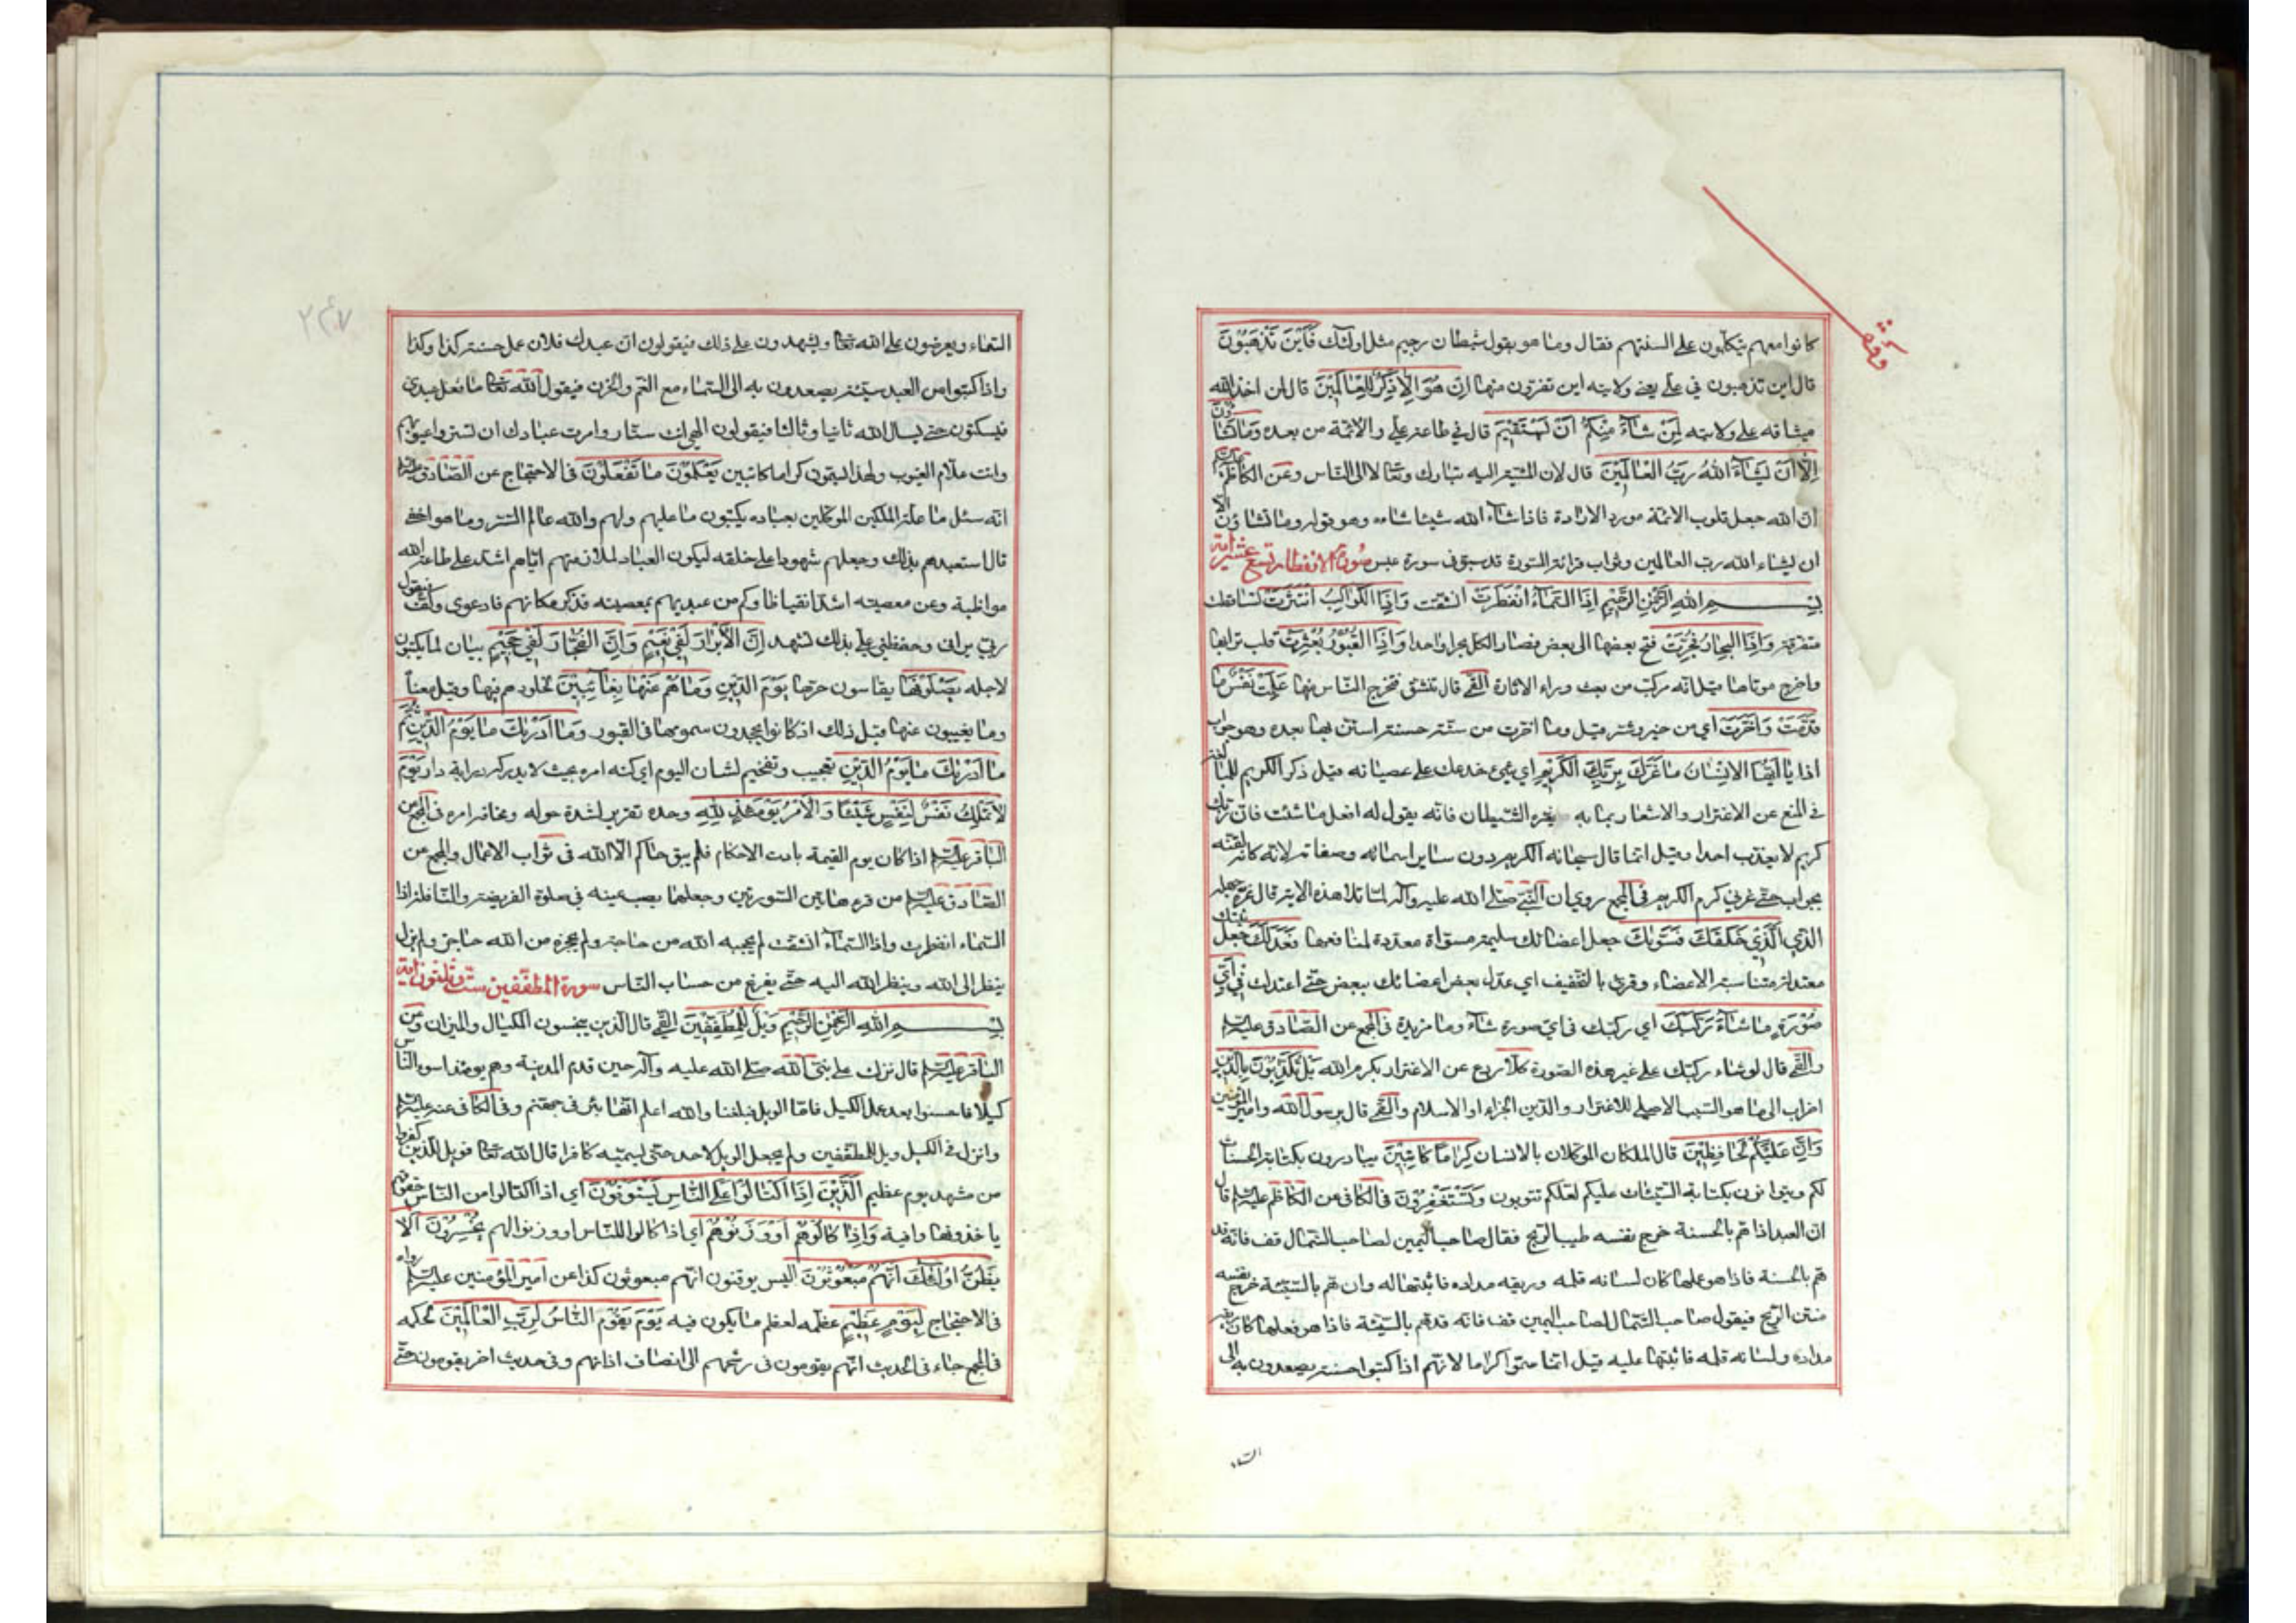 وقف
كانوا معهم يتكلمون على السنتهم فقال وما هو بقول شيطان رجيم مثل اولئك فَاَيْنَ تَذْهَبُونَ
قال اين تذهبون في علي يعني ولايته اين تفرّون منها اِنْ هُوَ اِلّا ذِكْرٌ لِلْعٰالَمِينَ قال لمن اخذ الله
ميثاقه على ولايته لِمَنْ شٰاءَ مِنْكُمْ اَنْ يَسْتَقِيمَ قال في طاعة علي والائمة من بعده وَمٰا تَشٰاؤُنَ
اِلّا اَنْ يَشٰاءَ اللهُ رَبُّ الْعٰالَمِينَ قال لان المشية اليه تبارك وتعالى لا الى الناس وعن الكاظم عليه السلام
ان الله جعل قلوب الائمة موردا لارادته فاذا شاء الله شيئا شاءوه وهو قوله وما تشاؤن الا
ان يشاء الله رب العالمين وثواب قرائة السورة قد سبق في سورة عبس سورة الانفطار تسع عشر اية
بِسْمِ اللهِ الرَّحْمٰنِ الرَّحِيمِ اِذَا السَّمٰاءُ انْفَطَرَتْ انشقت وَاِذَا الْكَوٰاكِبُ انْتَثَرَتْ تساقطت
متفرقة وَاِذَا الْبِحٰارُ فُجِّرَتْ فتح بعضها الى بعض فصار الكل بحرا واحدا وَاِذَا الْقُبُورُ بُعْثِرَتْ قلب ترابها
واخرج موتاها قيل انه مركب من بعث وراء الاثارة القمي قال تنشق فتخرج الناس منها عَلِمَتْ نَفْسٌ مٰا
قَدَّمَتْ وَاَخَّرَتْ اي من خير وشر وقيل وما اخرت من سنة حسنة استن بها بعده وهو جواب
اذا يٰا اَيُّهَا الْاِنْسٰانُ مٰا غَرَّكَ بِرَبِّكَ الْكَرِيمِ اي شيء خدعك على عصيانه قيل ذكر الكريم للمبالغة
في المنع عن الاغترار والاشعار بما به يغره الشيطان فانه يقول له افعل ما شئت فان ربك
كريم لا يعذب احدا وقيل انما قال سبحانه الكريم دون ساير اسمائه وصفاته لانه كانه لقنه
بجواب حتى غرني كرم الكريم في المجمع روي ان النبي صلى الله عليه وآله لما تلا هذه الاية قال غره جهله
اَلَّذِي خَلَقَكَ فَسَوّٰيكَ جعل اعضائك سليمة مسواة معدة لمنافعها فَعَدَلَكَ جعل بنيتك
معتدلة متناسبة الاعضاء وقرئ بالتخفيف اي عدل بعض اعضائك ببعض حتى اعتدلت فِي اَيِّ
صُورَةٍ مٰا شٰاءَ رَكَّبَكَ اي ركبك في اي صورة شاء وما مزيدة في المجمع عن الصادق عليه السلام
والقمي قال لو شاء ركبك على غير هذه الصورة كَلّا ردع عن الاغترار بكرم الله بَلْ تُكَذِّبُونَ بِالدِّينِ
اضراب الى ما هو السبب الاصلي للاغترار والدين الجزاء او الاسلام والقمي قال برسول الله وامير المؤمنين
وَاِنَّ عَلَيْكُمْ لَحٰافِظِينَ قال الملكان الموكلان بالانسان كِرٰاماً كٰاتِبِينَ يبادرون بكتابة الحسنات
لكم ويتوانون بكتابة السيئات عليكم لعلكم تتوبون وتستغفرون في الكافي عن الكاظم عليه السلام قال
ان العبد اذا هم بالحسنة خرج نفسه طيب الريح فقال صاحب اليمين لصاحب الشمال قف فانه قد
هم بالحسنة فاذا هو عملها كان لسانه قلمه وريقه مداده فاثبتها له وان هم بالسيئة خرج نفسه
منتن الريح فيقول صاحب الشمال لصاحب اليمين قف فانه قد هم بالسيئة فاذا هو فعلها كان ريقه
مداده ولسانه قلمه فاثبتها عليه قيل انما سموا كراما لانهم اذا كتبوا حسنة يصعدون به الى
السماء
٢٤٧
السماء ويعرضون على الله تعالى ويشهدون على ذلك فيقولون ان عبدك فلان عمل حسنة كذا وكذا
واذا كتبوا من العبد سيئة يصعدون به الى السماء مع الغم والحزن فيقول الله تعالى ما فعل عبدي
فيسكتون حتى يسال الله ثانيا وثالثا فيقولون الهي انت ستار وامرت عبادك ان تستروا عيوبهم
وانت علام الغيوب ولهذا يسمون كراما كاتبين يَعْلَمُونَ مٰا تَفْعَلُونَ في الاحتجاج عن الصادق عليه السلام
انه سئل ما علة الملكين الموكلين بعباده يكتبون ما عليهم ولهم والله عالم السر وما هو اخفى
قال استعبدهم بذلك وجعلهم شهودا على خلقه ليكون العباد لملازمتهم اياهم اشد على طاعة الله
مواظبة وعن معصيته اشد انقباظا وكم من عبد يهم بمعصيته فذكر مكانهم فارعوى وكف فيقول
ربي يراني وحفظتي علي بذلك تشهد اِنَّ الْاَبْرٰارَ لَفِي نَعِيمٍ وَاِنَّ الْفُجّٰارَ لَفِي جَحِيمٍ بيان لما يكتبون
لاجله يَصْلَوْنَهٰا يقاسون حرها يَوْمَ الدِّينِ وَمٰا هُمْ عَنْهٰا بِغٰائِبِينَ لخلودهم فيها وقيل معناه
وما يغيبون عنها قبل ذلك اذ كانوا يجدون سمومها في القبور وَمٰا اَدْرٰيكَ مٰا يَوْمُ الدِّينِ ثُمَّ
مٰا اَدْرٰيكَ مٰا يَوْمُ الدِّينِ تعجيب وتفخيم لشان اليوم اي كنه امره بحيث لا يدركه دراية دار يَوْمَ
لٰا تَمْلِكُ نَفْسٌ لِنَفْسٍ شَيْئاً وَالْاَمْرُ يَوْمَئِذٍ لِلّٰهِ وحده تقرير لشدة هوله وفخامة امره في المجمع عن
الباقر عليه السلام اذا كان يوم القيمة بادت الاحكام فلم يبق حاكم الا الله في ثواب الاعمال والمجمع عن
الصادق عليه السلام من قرء هاتين السورتين وجعلهما نصب عينه في صلوة الفريضة والنافلة اذا
السماء انفطرت واذا السماء انشقت لم يحجبه الله من حاجة ولم يحجزه من الله حاجز ولم يزل
ينظر الى الله وينظر الله اليه حتى يفرغ من حساب الناس سورة المطففين ست وثلثون اية
بِسْمِ اللهِ الرَّحْمٰنِ الرَّحِيمِ وَيْلٌ لِلْمُطَفِّفِينَ القمي قال الذين يبخسون المكيال والميزان وعن
الباقر عليه السلام قال نزلت على نبي الله صلى الله عليه وآله حين قدم المدينة وهم يومئذ اسوء الناس
كيلا فاحسنوا بعد عمل الكيل فاما الويل فبلغنا والله اعلم انها بئر في جهنم وفي الكافي عنه عليه السلام
وانزل في الكيل ويل للمطففين ولم يجعل الويل لاحد حتى يسميه كافرا قال الله تعالى فويل للذين كفروا
من مشهد يوم عظيم اَلَّذِينَ اِذَا اكْتٰالُوا عَلَى النّٰاسِ يَسْتَوْفُونَ اي اذا اكتالوا من الناس حقوقهم
ياخذونها وافية وَاِذٰا كٰالُوهُمْ اَوْ وَزَنُوهُمْ اي اذا كالوا للناس او وزنوا لهم يُخْسِرُونَ اَلٰا
يَظُنُّ اُولٰئِكَ اَنَّهُمْ مَبْعُوثُونَ اليس يوقنون انهم مبعوثون كذا عن امير المؤمنين عليه السلام رواه
في الاحتجاج لِيَوْمٍ عَظِيمٍ عظمه لعظم ما يكون فيه يَوْمَ يَقُومُ النّٰاسُ لِرَبِّ الْعٰالَمِينَ لحكمه
في المجمع جاء في الحديث انهم يقومون في رشحهم الى انصاف اذانهم وفي حديث اخر يقومون حتى